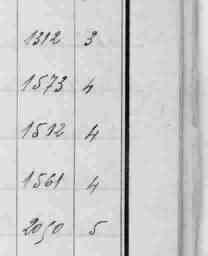 1312 3
1573 4
1512 4
1561 4
2050 5